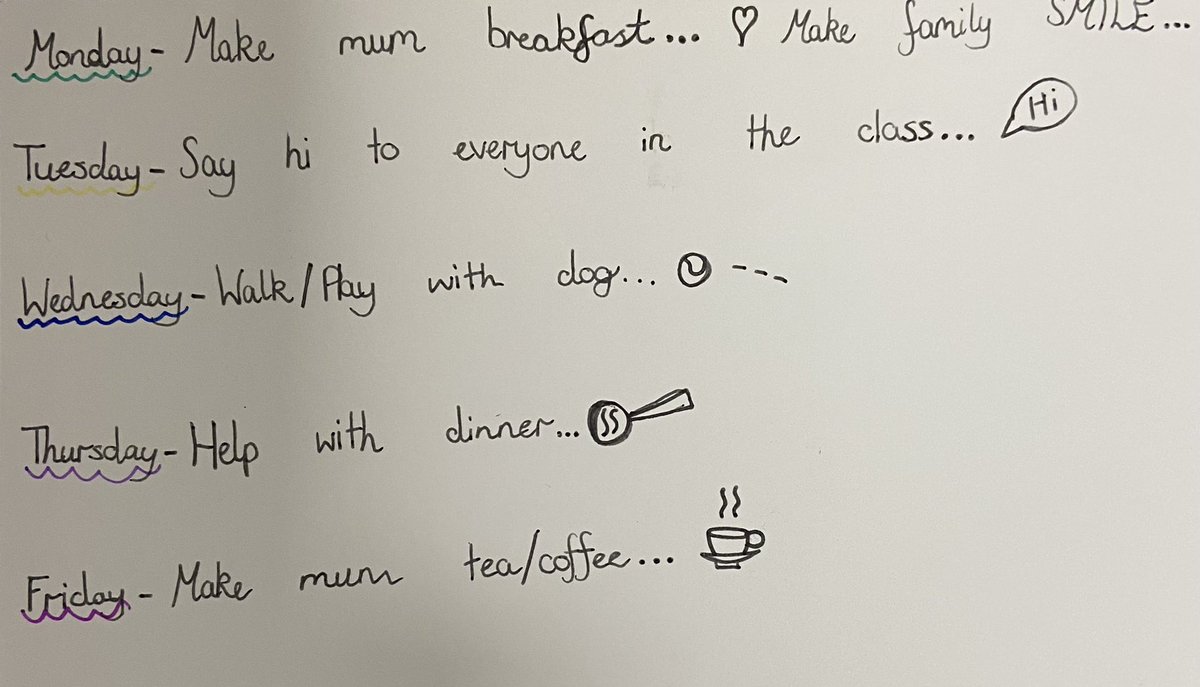 Monday- Make mum breakfast... ♡ Make family SMILE...
Tuesday- Say hi to everyone in the class... Hi
Wednesday- Walk/Play with dog...
Thursday- Help with dinner...
Friday- Make mum tea/coffee...